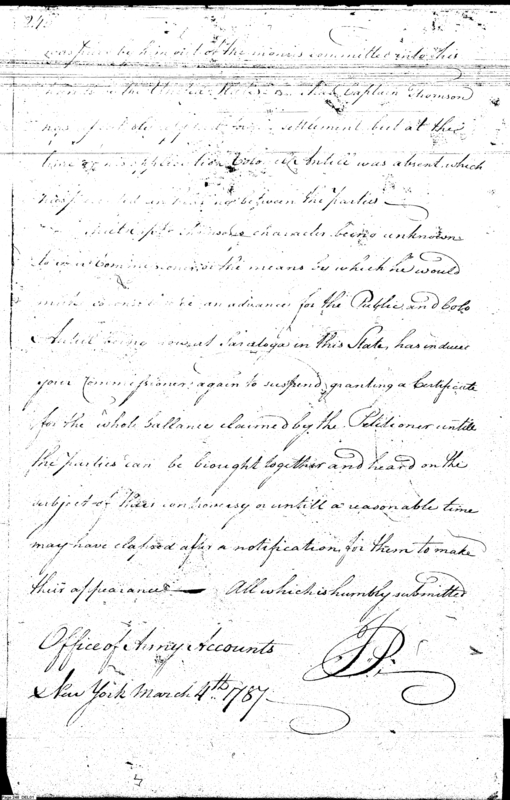 243
was paid by him out of the monies committed into his
hands by the United States. Captain Thomson
settlement but at the
time of his application Colo. Antill was absent which
between the parties —
Captn Thomsons character being unknown
to your Commissioner or the means by which he would
make so an advance for the Public, and Colo
Antill being now at Saratoga in this State, has induced
your Commissioner again to suspend granting a Certificate
for the whole ballance claimed by the Petitioner untill
the parties can be brought together and heard on the
subject of their controversy or untill a reasonable time
may have elapsed after a notification for them to make
their appearance — All which is humbly submitted
Office of Army Accounts
New York March 4th 1787 —
JP.